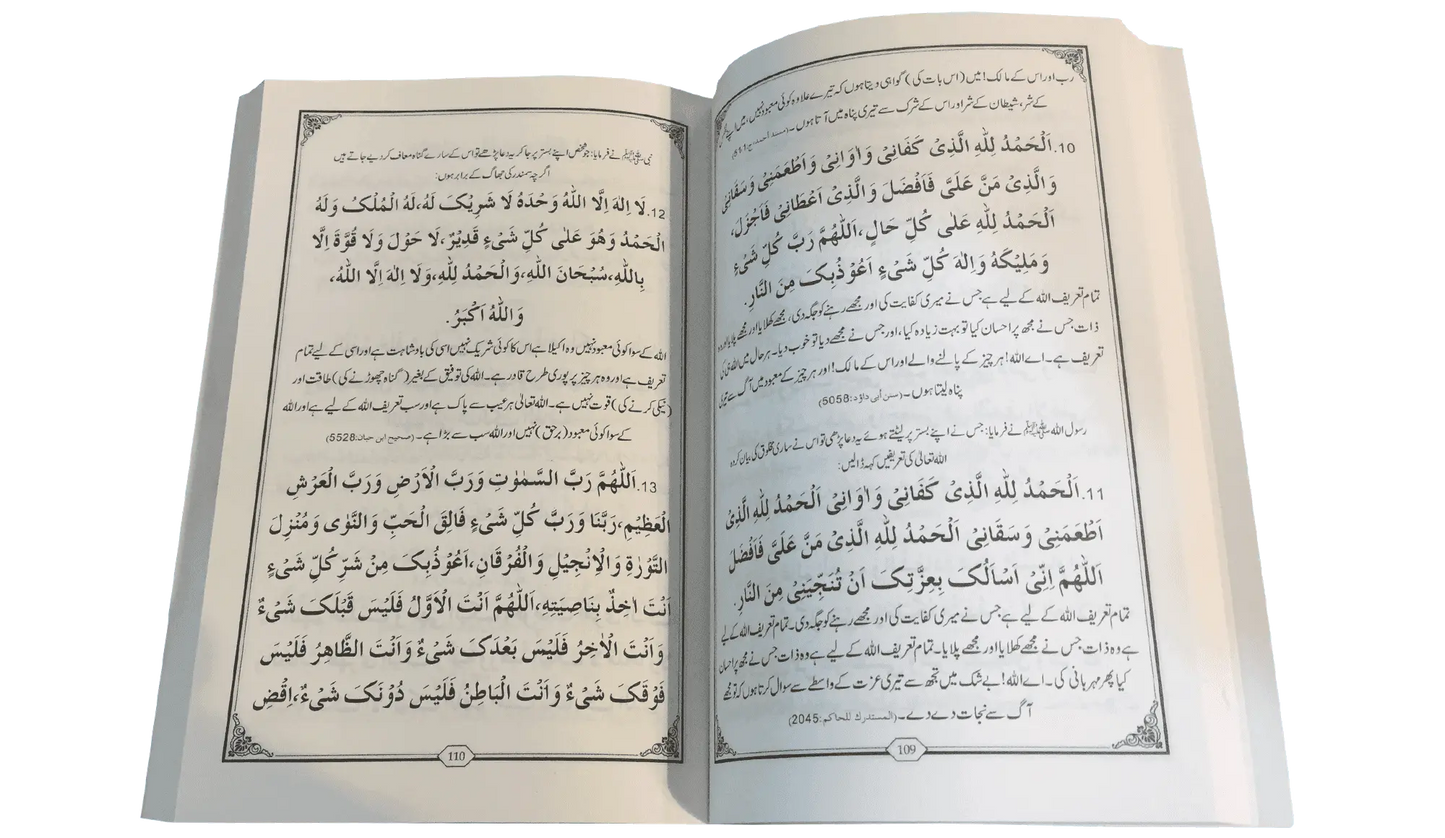 رب اور اس کے مالک! میں (اس بات کی) گواہی دیتا ہوں کہ تیرے علاوہ کوئی معبود نہیں، میں اپنے
کے شر، شیطان کے شر اور اس کے شرک سے تیری پناہ میں آتا ہوں۔ (مسند أحمد، ج
10. اَلْحَمْدُ لِلّٰهِ الَّذِیْ کَفَانِیْ وَاٰوَانِیْ وَاَطْعَمَنِیْ وَسَقَانِیْ
وَالَّذِیْ مَنَّ عَلَیَّ فَاَفْضَلَ وَالَّذِیْ اَعْطَانِیْ فَاَجْزَلَ،
اَلْحَمْدُ لِلّٰهِ عَلٰی کُلِّ حَالٍ، اَللّٰهُمَّ رَبَّ کُلِّ شَیْءٍ
وَمَلِیْکَهُ وَاِلٰهَ کُلِّ شَیْءٍ اَعُوْذُبِکَ مِنَ النَّارِ.
تمام تعریف اللہ کے لیے ہے جس نے میری کفایت کی اور مجھے رہنے کو جگہ دی، مجھے کھلایا اور مجھے پلایا اور وہ
ذات جس نے مجھ پر احسان کیا تو بہت زیادہ کیا، اور جس نے مجھے دیا تو خوب دیا۔ ہر حال میں اللہ ہی کی
تعریف ہے۔ اے اللہ! ہر چیز کے پالنے والے اور اس کے مالک! اور ہر چیز کے معبود میں آگ سے تیری
پناہ لیتا ہوں۔ (سنن أبی داؤد:5058)
رسول اللہ ﷺ نے فرمایا: جس نے اپنے بستر پر لیٹتے ہوئے یہ دعا پڑھی تو اس نے ساری مخلوق کی بیان کردہ
اللہ تعالیٰ کی تعریفیں کہہ ڈالیں:
11. اَلْحَمْدُ لِلّٰهِ الَّذِیْ کَفَانِیْ وَاٰوَانِیْ اَلْحَمْدُ لِلّٰهِ الَّذِیْ
اَطْعَمَنِیْ وَسَقَانِیْ اَلْحَمْدُ لِلّٰهِ الَّذِیْ مَنَّ عَلَیَّ فَاَفْضَلَ
اَللّٰهُمَّ اِنِّیْ اَسْاَلُکَ بِعِزَّتِکَ اَنْ تُنَجِّیَنِیْ مِنَ النَّارِ.
تمام تعریف اللہ کے لیے ہے جس نے میری کفایت کی اور مجھے رہنے کو جگہ دی۔ تمام تعریف اللہ کے لیے
ہے وہ ذات جس نے مجھے کھلایا اور مجھے پلایا۔ تمام تعریف اللہ کے لیے ہے وہ ذات جس نے مجھ پر احسان
کیا پھر مہربانی کی۔ اے اللہ! بے شک میں تجھ سے تیری عزت کے واسطے سے سوال کرتا ہوں کہ تو مجھے
آگ سے نجات دے دے۔ (المستدرك للحاكم:2045)
109
نبی ﷺ نے فرمایا: جو شخص اپنے بستر پر جا کر یہ دعا پڑھے تو اس کے سارے گناہ معاف کر دیے جاتے ہیں
اگرچہ سمندر کی جھاگ کے برابر ہوں:
12. لَا اِلٰهَ اِلَّا اللّٰهُ وَحْدَهُ لَا شَرِیْکَ لَهُ، لَهُ الْمُلْکُ وَلَهُ
الْحَمْدُ وَهُوَ عَلٰی کُلِّ شَیْءٍ قَدِیْرٌ، لَا حَوْلَ وَلَا قُوَّةَ اِلَّا
بِاللّٰهِ، سُبْحَانَ اللّٰهِ، وَالْحَمْدُ لِلّٰهِ، وَلَا اِلٰهَ اِلَّا اللّٰهُ،
وَاللّٰهُ اَکْبَرُ.
اللہ کے سوا کوئی معبود نہیں وہ اکیلا ہے اس کا کوئی شریک نہیں اسی کی بادشاہت ہے اور اسی کے لیے تمام
تعریف ہے اور وہ ہر چیز پر پوری طرح قادر ہے۔ اللہ کی توفیق کے بغیر (گناہ چھوڑنے کی) طاقت اور
(نیکی کرنے کی) قوت نہیں ہے۔ اللہ تعالیٰ ہر عیب سے پاک ہے اور سب تعریف اللہ کے لیے ہے اور اللہ
کے سوا کوئی معبود (برحق) نہیں اور اللہ سب سے بڑا ہے۔ (صحیح ابن حبان:5528)
13. اَللّٰهُمَّ رَبَّ السَّمٰوٰتِ وَرَبَّ الْاَرْضِ وَرَبَّ الْعَرْشِ
الْعَظِیْمِ، رَبَّنَا وَرَبَّ کُلِّ شَیْءٍ فَالِقَ الْحَبِّ وَالنَّوٰی وَمُنْزِلَ
التَّوْرٰةِ وَالْاِنْجِیْلِ وَالْفُرْقَانِ، اَعُوْذُبِکَ مِنْ شَرِّ کُلِّ شَیْءٍ
اَنْتَ اٰخِذٌ بِنَاصِیَتِهِ، اَللّٰهُمَّ اَنْتَ الْاَوَّلُ فَلَیْسَ قَبْلَکَ شَیْءٌ
وَاَنْتَ الْاٰخِرُ فَلَیْسَ بَعْدَکَ شَیْءٌ وَاَنْتَ الظَّاهِرُ فَلَیْسَ
فَوْقَکَ شَیْءٌ وَاَنْتَ الْبَاطِنُ فَلَیْسَ دُوْنَکَ شَیْءٌ، اِقْضِ
110